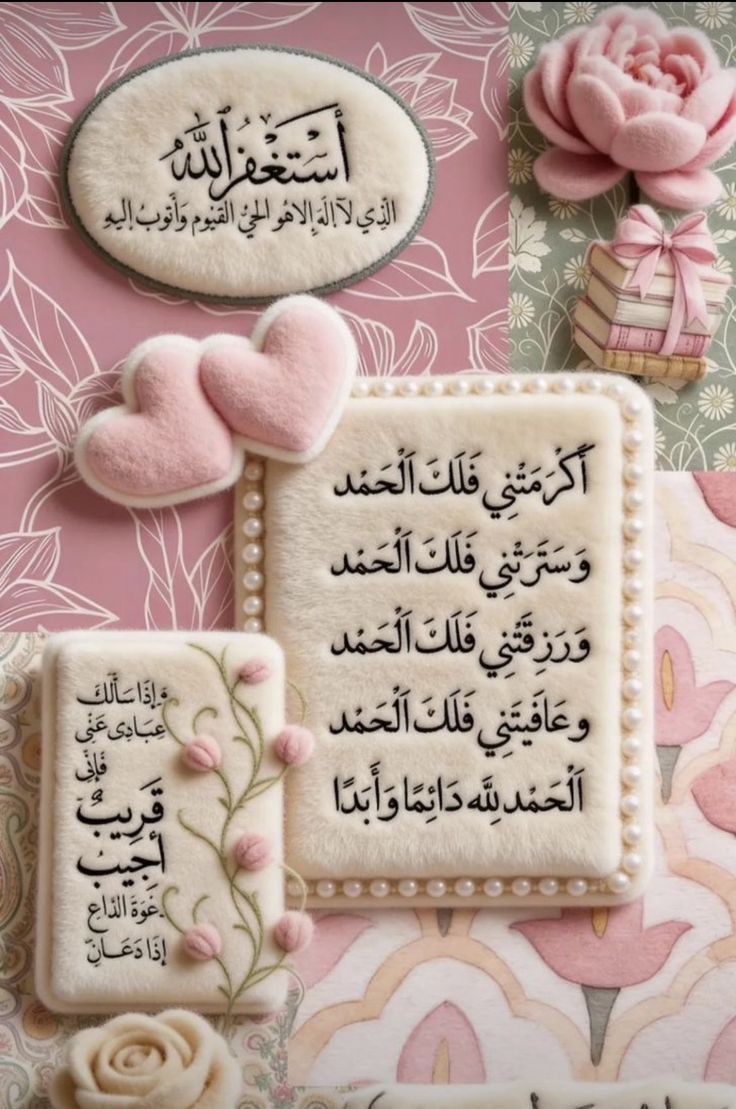 أَسْتَغْفِرُ اللَّهَ
الَّذِي لَا إِلَهَ إِلَّا هُوَ الْحَيُّ الْقَيُّومُ وَأَتُوبُ إِلَيْهِ
أَكْرَمَتْنِي فَلَكَ الْحَمْد
وَسَتَرَتْنِي فَلَكَ الْحَمْد
وَرَزِقَتْنِي فَلَكَ الْحَمْد
وعَافَيتَنِي فَلَكَ الْحَمْد
اَلْحَمْد لِلَّه دَائِمًا وَأَبَدًا
وَإِذَا سَأَلَكَ
عِبَادِي عَنِّي
فَإِنِّي
قَرِيبٌ
أُجِيبُ
دَعْوَةَ الدَّاعِ
إِذَا دَعَانِ